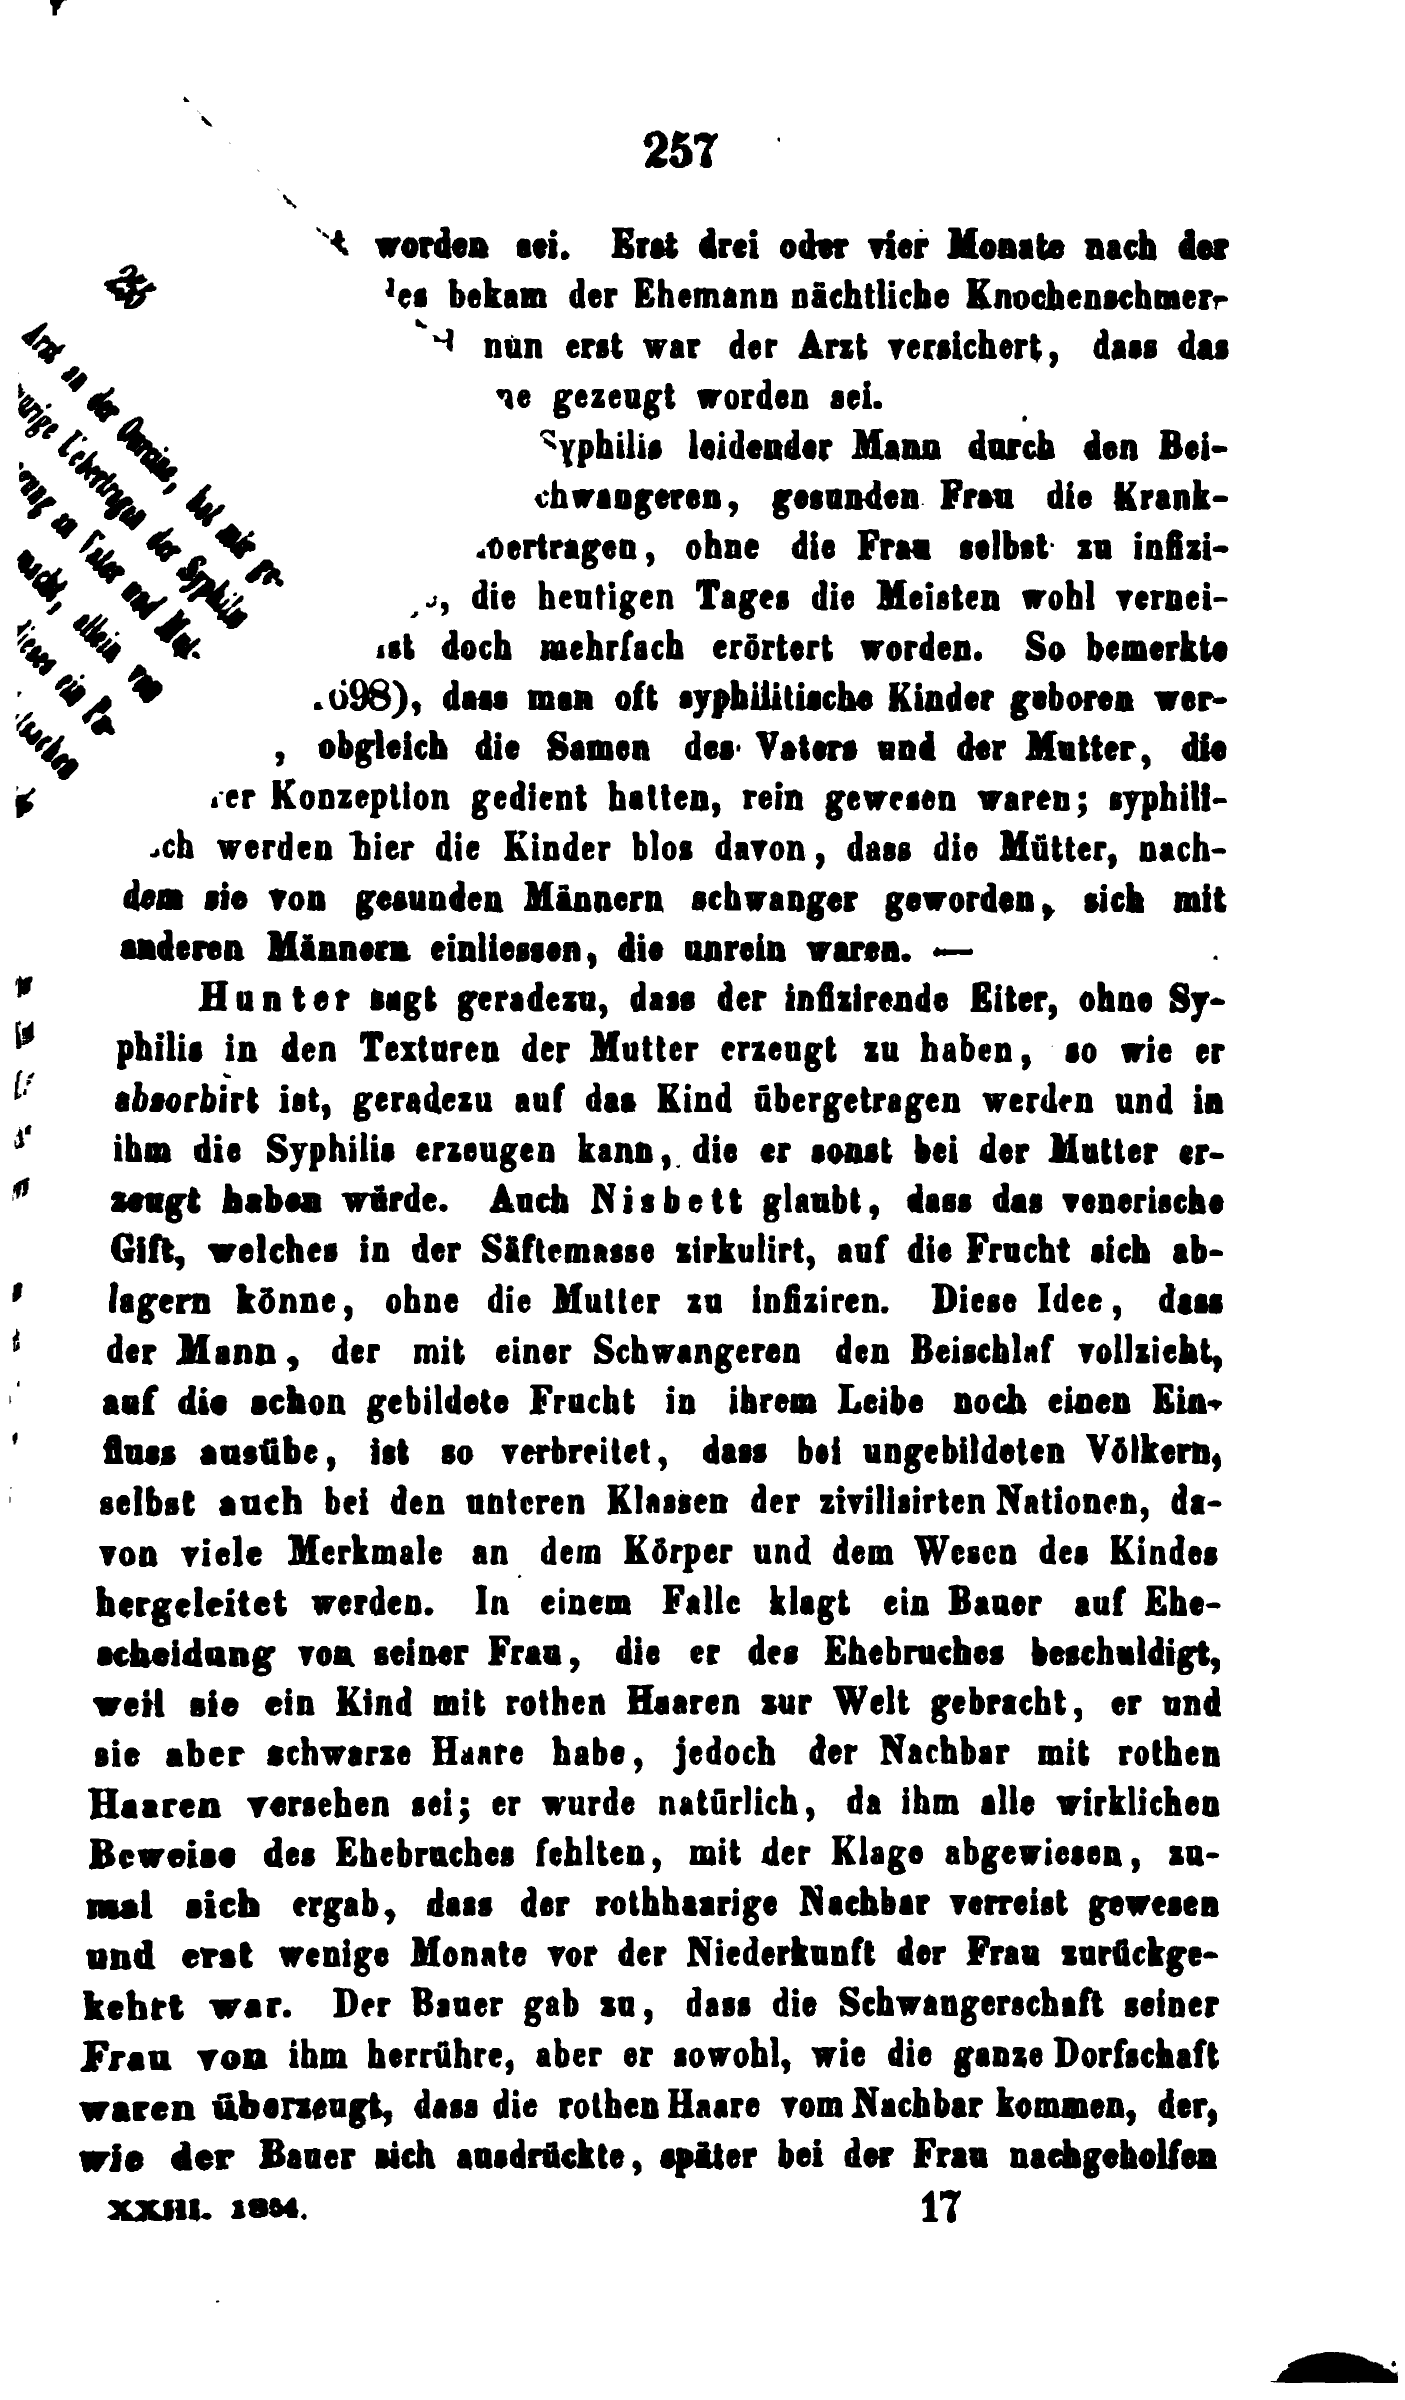 257
worden sei. Erst drei oder vier Monate nach der
bekam der Ehemann nächtliche Knochenschmer-
nun erst war der Arzt versichert, dass das
gezeugt worden sei.
Syphilis leidender Mann durch den Bei-
chwangeren, gesunden Frau die Krank-
bertragen, ohne die Frau selbst zu infizi-
, die heutigen Tages die Meisten wohl vernei-
ist doch mehrfach erörtert worden. So bemerkte
698), dass man oft syphilitische Kinder geboren wer-
, obgleich die Samen des Vaters und der Mutter, die
Konzeption gedient hatten, rein gewesen waren; syphili-
ch werden hier die Kinder blos davon, dass die Mütter, nach-
dem sie von gesunden Männern schwanger geworden, sich mit
anderen Männern einliessen, die unrein waren. —
Hunter sagt geradezu, dass der infizirende Eiter, ohne Sy-
philis in den Texturen der Mutter erzeugt zu haben, so wie er
absorbirt ist, geradezu auf das Kind übergetragen werden und in
ihm die Syphilis erzeugen kann, die er sonst bei der Mutter er-
zeugt haben würde. Auch Nisbett glaubt, dass das venerische
Gift, welches in der Säftemasse zirkulirt, auf die Frucht sich ab-
lagern könne, ohne die Mutter zu infiziren. Diese Idee, dass
der Mann, der mit einer Schwangeren den Beischlaf vollzieht,
auf die schon gebildete Frucht in ihrem Leibe noch einen Ein-
fluss ausübe, ist so verbreitet, dass bei ungebildeten Völkern,
selbst auch bei den unteren Klassen der zivilisirten Nationen, da-
von viele Merkmale an dem Körper und dem Wesen des Kindes
hergeleitet werden. In einem Falle klagt ein Bauer auf Ehe-
scheidung von seiner Frau, die er des Ehebruches beschuldigt,
weil sie ein Kind mit rothen Haaren zur Welt gebracht, er und
sie aber schwarze Haare habe, jedoch der Nachbar mit rothen
Haaren versehen sei; er wurde natürlich, da ihm alle wirklichen
Beweise des Ehebruches fehlten, mit der Klage abgewiesen, zu-
mal sich ergab, dass der rothhaarige Nachbar verreist gewesen
und erst wenige Monate vor der Niederkunft der Frau zurückge-
kehrt war. Der Bauer gab zu, dass die Schwangerschaft seiner
Frau von ihm herrühre, aber er sowohl, wie die ganze Dorfschaft
waren überzeugt, dass die rothen Haare vom Nachbar kommen, der,
wie der Bauer sich ausdrückte, später bei der Frau nachgeholfen
XXIII. 1854.
17
Arzt an der Ostseine, hat mir ge-
Uebertragen der Syphilis
zu Vater und Mut-
macht, allein von
dieses ein Pa-